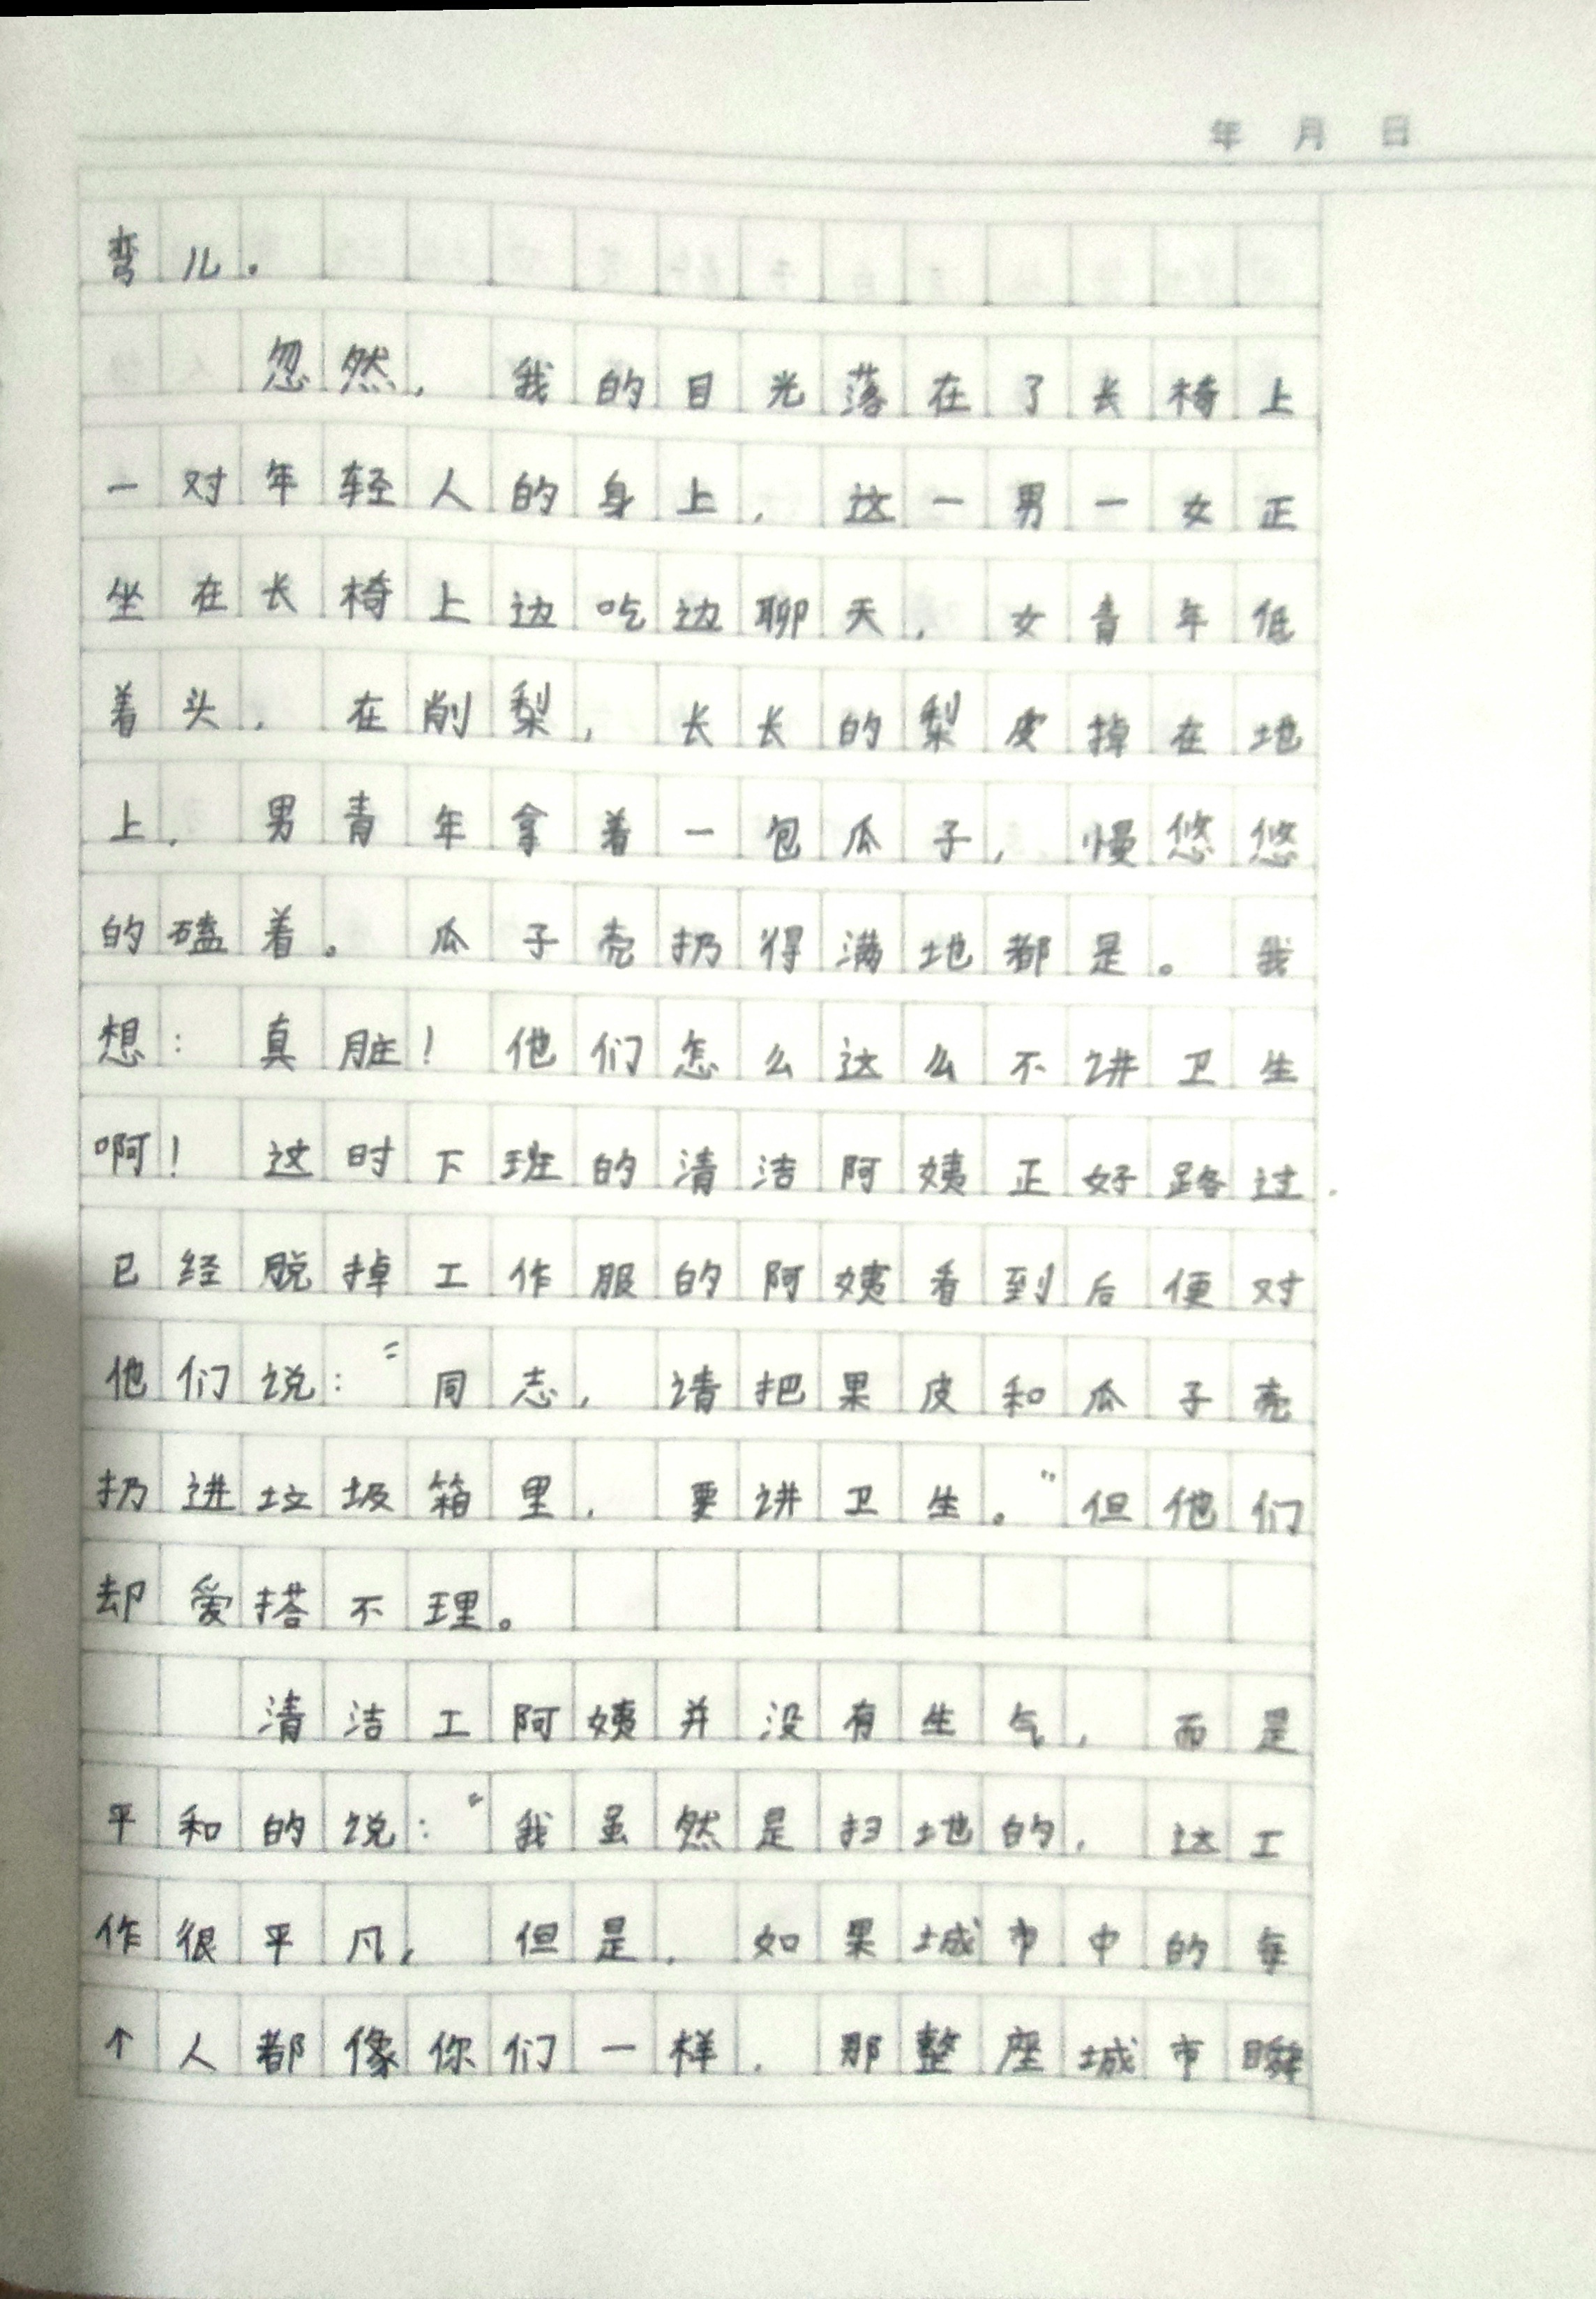 年 月 日
弯儿。
忽然，我的目光落在了长椅上
一对年轻人的身上，这一男一女正
坐在长椅上边吃边聊天，女青年低
着头，在削梨，长长的梨皮掉在地
上，男青年拿着一包瓜子，慢悠悠
的磕着。瓜子壳扔得满地都是。我
想：真脏！他们怎么这么不讲卫生
啊！这时下班的清洁阿姨正好路过，
已经脱掉工作服的阿姨看到后便对
他们说：“同志，请把果皮和瓜子壳
扔进垃圾箱里，要讲卫生。”但他们
却爱搭不理。
清洁工阿姨并没有生气，而是
平和的说：“我虽然是扫地的，这工
作很平凡，但是，如果城市中的每
个人都像你们一样，那整座城市瞬